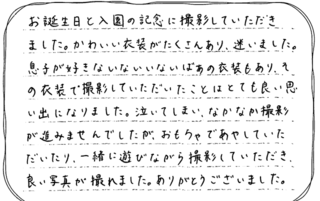 お誕生日と入園の記念に撮影していただき
ました。かわいい衣装がたくさんあり、迷いました。
息子が好きないないいないばあの衣装もあり、そ
の衣装で撮影していただいたことはとても良い思
い出になりました。泣いてしまい、なかなか撮影
が進みませんでしたが、おもちゃであやしていた
だいたり、一緒に遊びながら撮影していただき、
良い写真が撮れました。ありがとうございました。